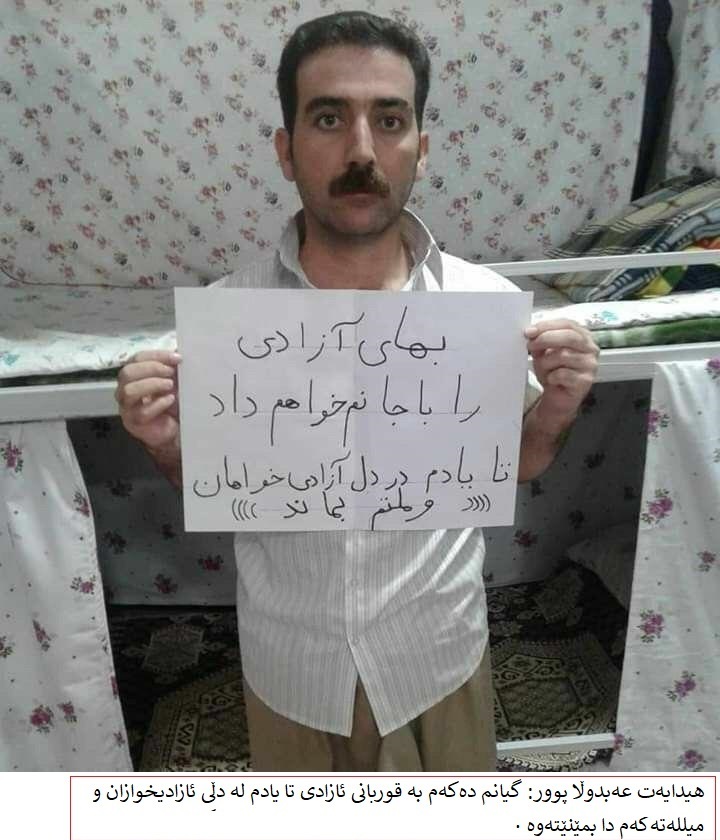 بهای آزادی
را با جانم خواهم داد
تا یادم در دل آزادی خواهان
)))) و ملتم بماند ((((
هیدایەت عەبدوڵا پوور: گیانم دەکەم بە قوربانی ئازادی تا یادم لە دڵی ئازادیخوازان و
میللەتەکەم دا بمێنێتەوە ٠